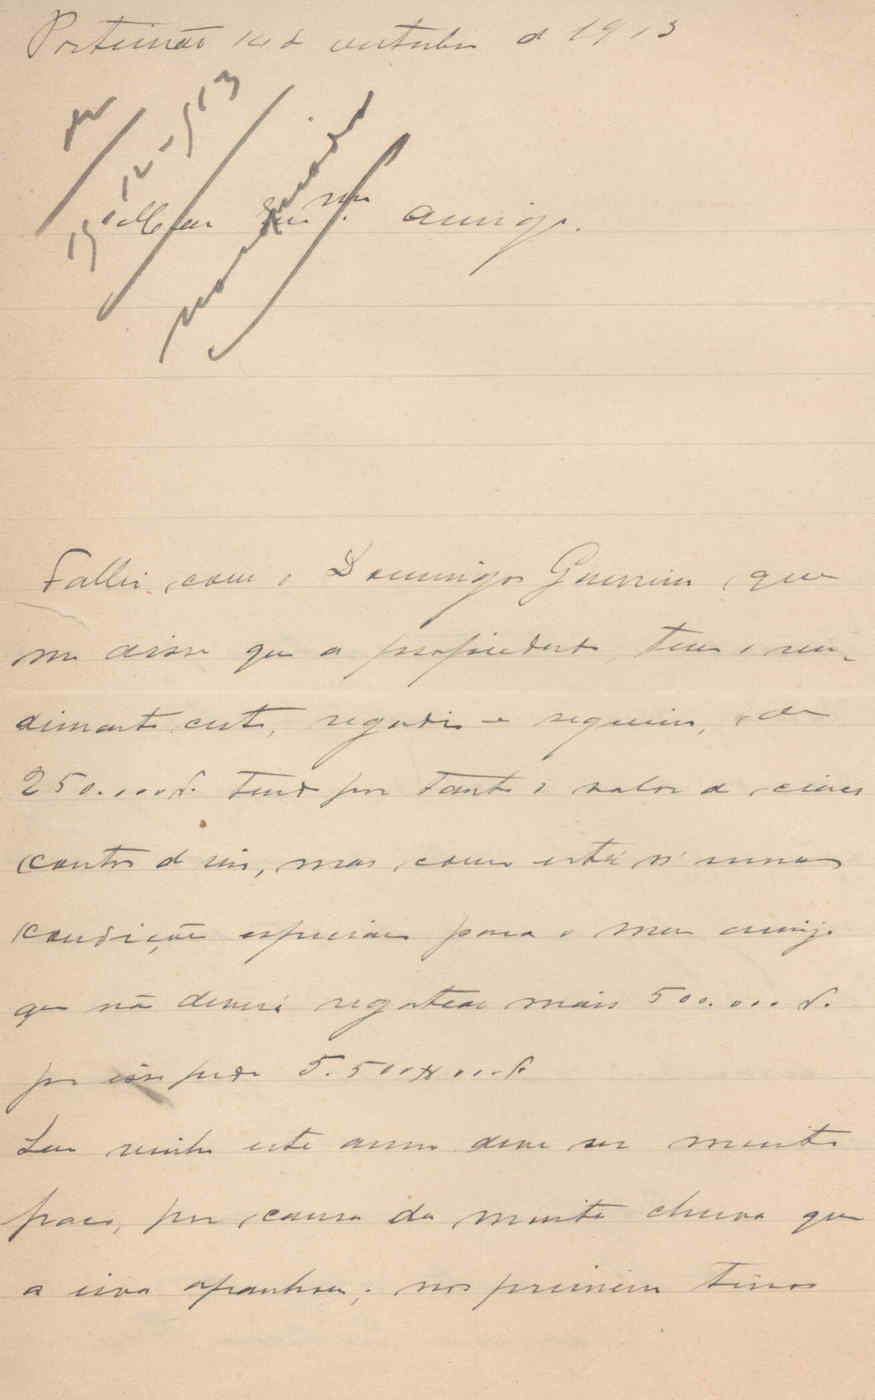 Portimão 14 de outubro de 1913
15-12-913
Meu amigo.
Fallei com o Domingos Guerreiro, que
me disse que a propriedade tem o ren-
dimento certo, regadio e sequeiro, de
250.000 r. tendo por tanto o valor de cinco
contos de reis, mas como está n'umas
condições especiaes para o meu amigo
que não deverá regatear mais 500.000 r.
por isso pede 5.500 000 r.
Seu vinho este anno deve ser muito
fraco, por causa da muita chuva que
a uva apanhou; nos primeiros